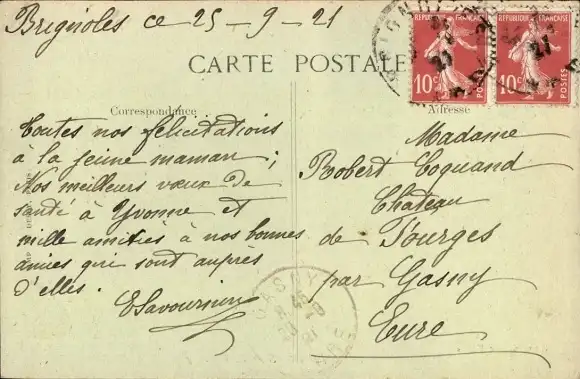 Brignoles ce 25-9-21
RÉPUBLIQUE FRANÇAISE
10c
POSTES
RÉPUBLIQUE FRANÇAISE
10c
POSTES
CARTE POSTALE
Correspondance
Adresse
Toutes nos félicitations
à la jeune maman;
Nos meilleurs vœux de
santé à Yvonne et
mille amitiés à nos bonnes
amies qui sont auprès
d'elles.
Madame
Robert Coquand
Chateau
de Fourges
par Gasny
Eure
GASNY